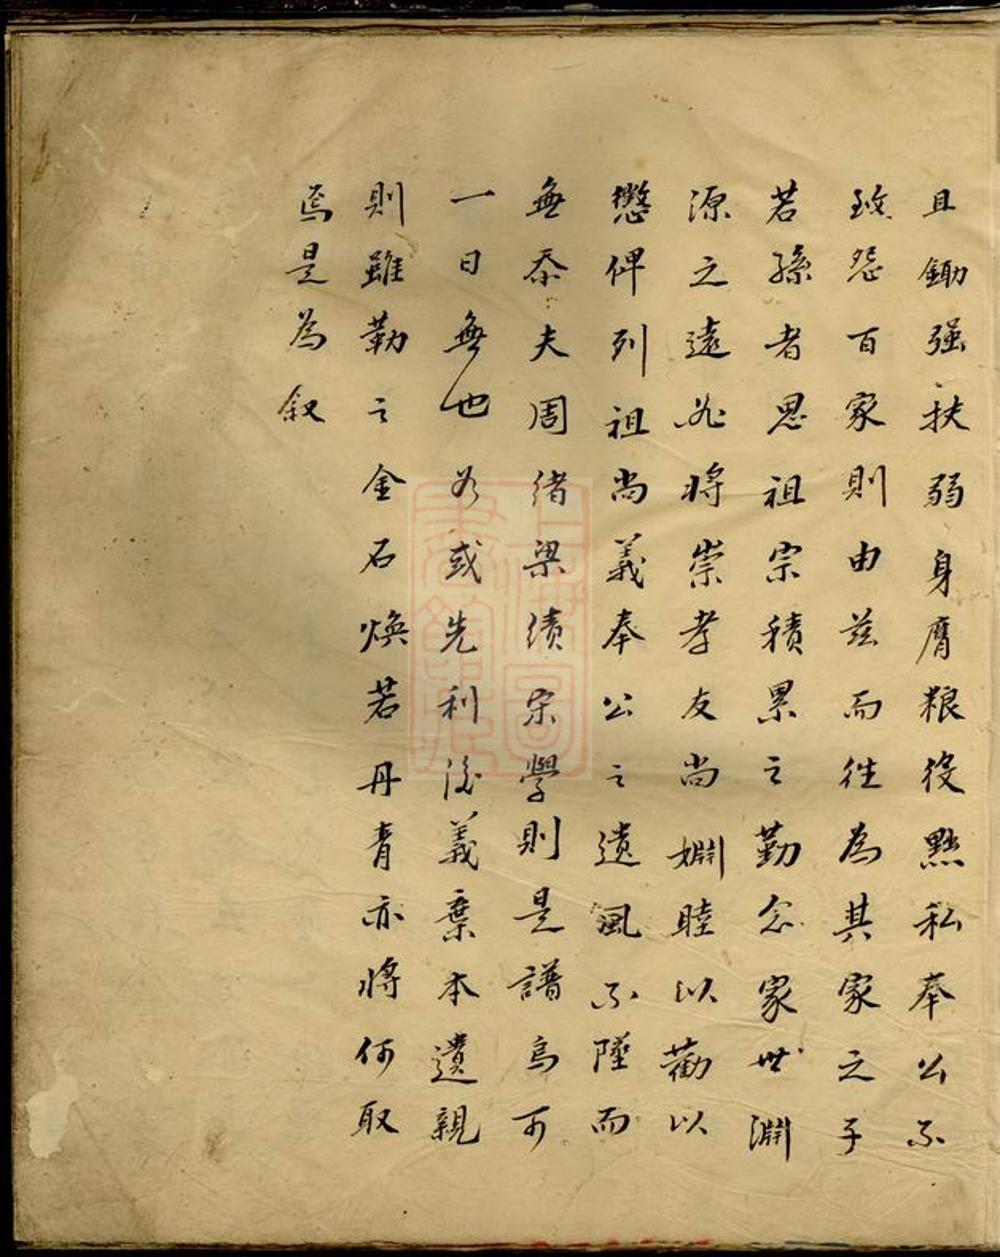 且鋤强扶弱身膺粮役黜私奉公不
致怨百家則由茲而徃為其家之子
若孫者思祖宗積累之勤念家世淵
源之遠必將崇孝友尚婣睦以勸以
懲俾列祖尚義奉公之遺風不墜而
無忝夫周緒梁績宋學則是譜烏可
一日無也若或先利後義棄本遺親
則雖勒之金石煥若丹青亦將何取
焉是為叙
上海圖書館藏